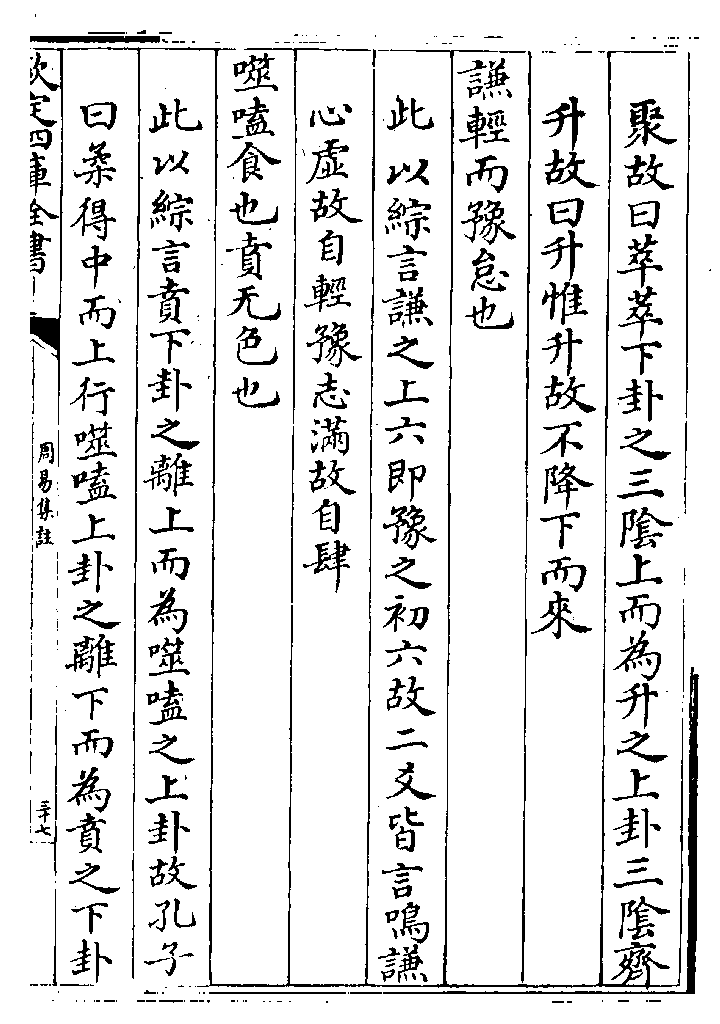 聚故曰萃萃下卦之三陰上而為升之上卦三陰齊
升故曰升惟升故不降下而來
謙輕而豫怠也
此以綜言謙之上六即豫之初六故二爻皆言鳴謙
心虛故自輕豫志滿故自肆
噬嗑食也賁无色也
此以綜言賁下卦之離上而為噬嗑之上卦故孔子
曰柔得中而上行噬嗑上卦之離下而為賁之下卦
欽定四庫全書
周易集註
三十七